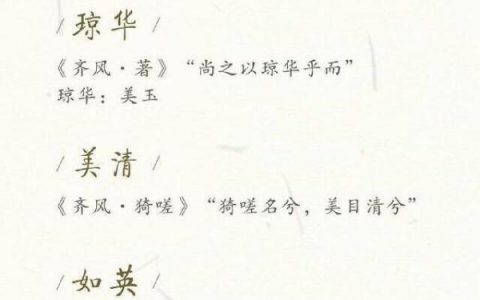 / 琼华 /
《齐风·著》“尚之以琼华乎而”
琼华：美玉
/ 美清 /
《齐风·猗嗟》“猗嗟名兮，美目清兮”
/ 如英 /